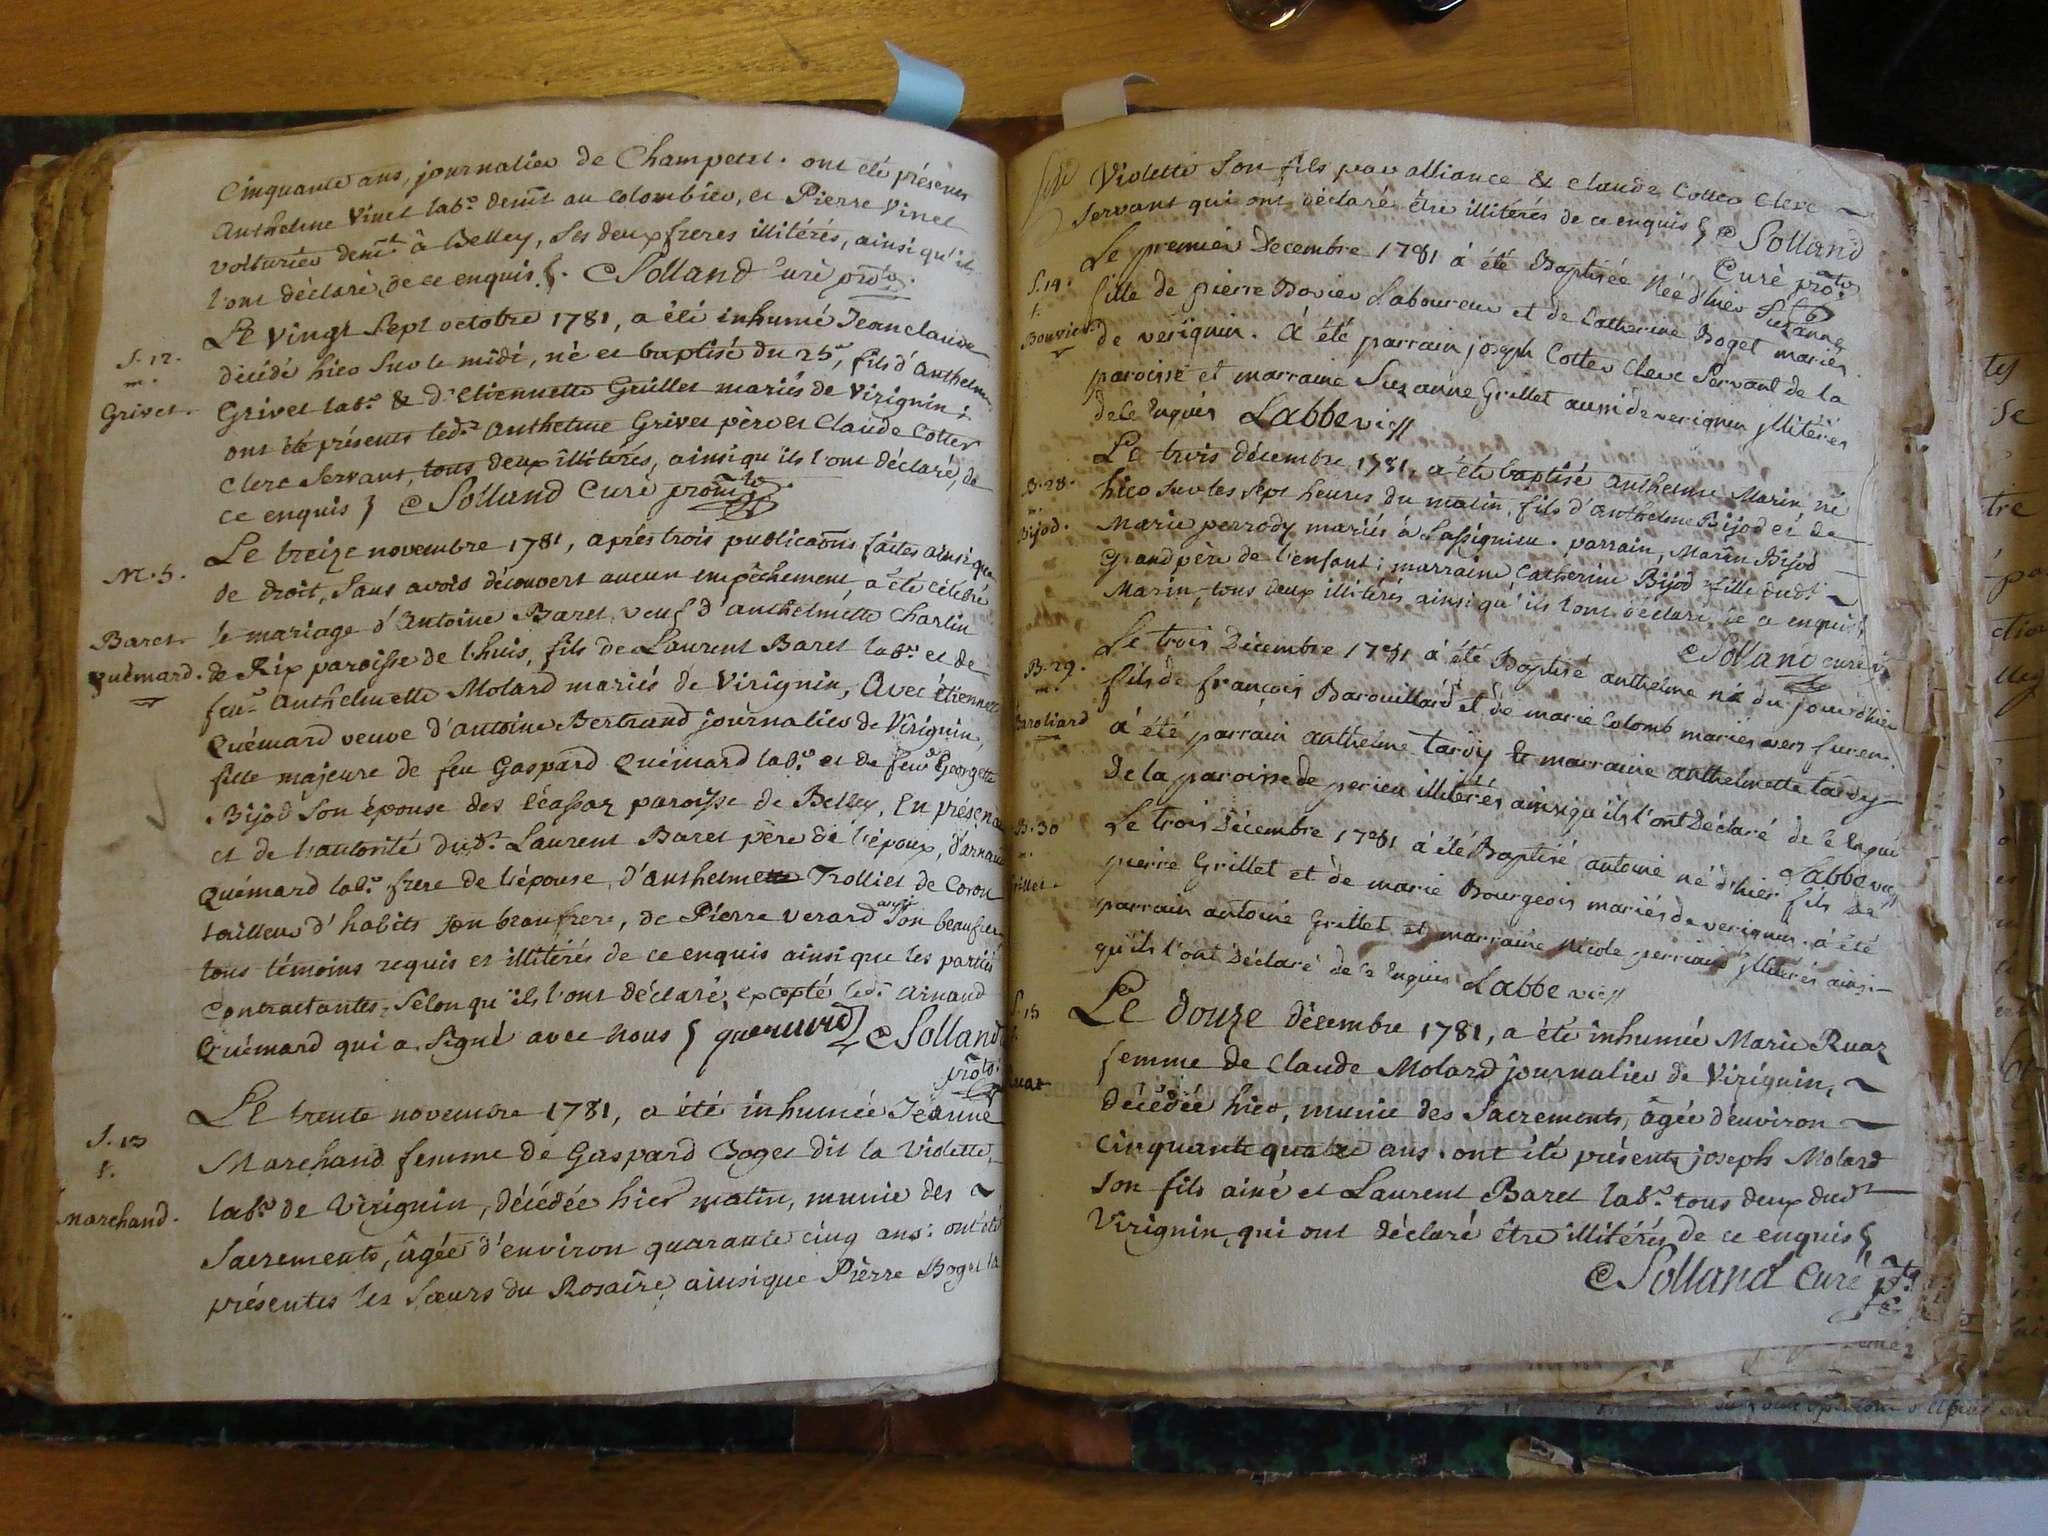 Cinquante ans, journalier de Champetel. ont été présents
Anthelme Vinet lab.r demt au Colombier, et Pierre Vinet
voiturier demt à Belley, ses deux freres illitérés, ainsi qu'ils
l'ont déclaré, de ce enquis. Solland Curé
S. 12.
m.
Grivet.
Le vingt sept octobre 1781, a été inhumé Jean claude
décédé hier sur le midi, né et baptisé du 25e, fils d'Anthelme
Grivet lab.r & d'Etiennette Guillet mariés de Virignin;
ont été présents led.t Anthelme Grivet père et Claude Cotter
Clerc Servant, tous deux illitérés, ainsi qu'ils l'ont déclaré, de
ce enquis Solland Curé
M. 5.
Baret
quémard.
Le treize novembre 1781, après trois publicaõns faites ainsi que
de droit, sans avoir découvert aucun empêchement, a été célébré
le mariage d'Antoine Baret, veuf d'anthelmette Charlin
de Rix paroisse de Lhuis, fils de Laurent Baret lab.r et de
feue Anthelmette Molard mariés de Virignin, Avec Etiennette
Quémard veuve d'antoine Bertrand journalier de Virignin,
fille majeure de feu Gaspard Quémard lab.r et de feue Georgette
Bijod son épouse des Ecassaz paroisse de Belley, En présence
et de l'autorité dud.t Laurent Baret père de l'époux, d'arnaud
Quémard lab.r frere de l'épouse, d'anthelme Trolliet de Coron
tailleur d'habits son beaufrere, de Pierre Verard aussi son beaufrere
tous témoins requis et illitérés de ce enquis ainsi que les parties
contractantes, selon qu'ils l'ont déclaré, excepté led.t Arnaud
Quémard qui a signé avec nous Solland
S. 13
f.
Marchand.
Le trente novembre 1781, a été inhumée Jeanne
Marchand femme de Gaspard Boget dit la Violette,
lab.r de Virignin, décédée hier matin, munie des
Sacrements, âgée d'environ quarante cinq ans: ont été
présentes les Sœurs du Rosaire, ainsi que Pierre Boget la
Violette son fils par alliance & claude Cotter Clerc
servant qui ont déclaré être illitérés de ce enquis Solland
Curé
S. 14.
f.
Bouvier.
Le premier Decembre 1781 à été Baptisée Née d'hier Suzanne
fille de pierre Bovier Laboureur et de Catherine Boget mariés
de verignin. à été parrain joseph Cotter Clerc Servant de la
paroisse et marraine Suzanne Grillet aussi de verignin yllitérés
de Ce Enquis Labbe
B. 28.
m.
Bijod.
Le trois décembre 1781, a été baptisé Anthelme Marin né
hier sur les sept heures du matin, fils d'Anthelme Bijod et de
Marie perrody mariés à Lassignieu. parrain, Marin Bijod
Grandpère de l'enfant; marraine Catherine Bijod fille dud.t
Marin, tous deux illitérés ainsi qu'ils l'ont déclaré de ce enquis
Solland curé
B. 29.
m.
Baroliard
Le trois Décembre 1781 à été Baptisé anthelme né du jour d'hier
fils de françois Barouillard et de marie Colomb mariés vers furens.
à été parrain anthelme tardy et marraine anthelmette tardy
De la paroisse de perieu illitérés ainsi qu'ils l'ont Déclaré de Ce Enquis
Labbe
B. 30
m.
Grillet
Le trois Décembre 1781 à été Baptisé antoine né d'hier fils de
pierre Grillet et de marie Bourgeois mariés de verignin. à été
parrain antoine Grillet et marraine Nicole yllitérés ainsi
qu'ils l'ont Déclaré de Ce Enquis Labbe
S. 15
f.
Ruaz
Le douze décembre 1781, a été inhumée Marie Ruaz
femme de Claude Molard journalier de Virignin,
décédée hier, munie des Sacrements, âgée d'environ
cinquante quatre ans. ont été présents joseph Molard
son fils ainé et Laurent Baret lab.r tous deux dud.t
Virignin, qui ont déclaré être illitérés de ce enquis
Solland Curé